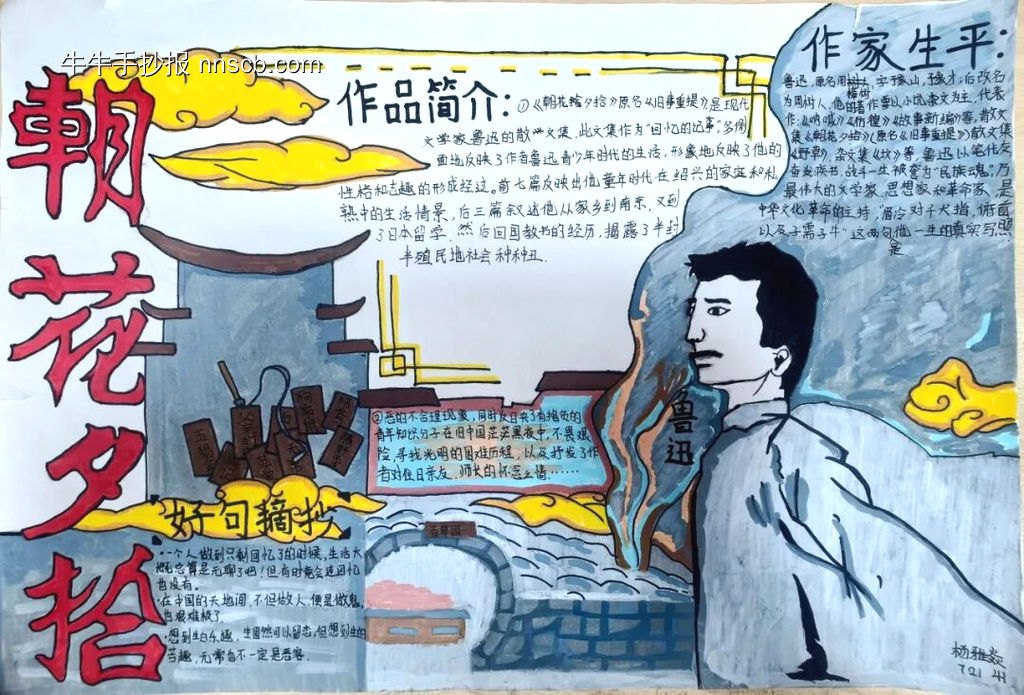 牛牛手抄报 nnscb.com
朝花夕拾
作品简介:
①《朝花夕拾》原名《旧事重提》,是现代
文学家鲁迅的散文集,此文集作为"回忆的记事"多侧
面地反映了作者鲁迅青少年时代的生活,形象地反映了他的
性格和志趣的形成经过。前七篇反映出他童年时代在绍兴的家庭和私
熟中的生活情景,后三篇叙述他从家乡到南京,又到
了日本留学,然后回国教书的经历,揭露了半封
半殖民地社会种种丑
②恶的不合理现象,同时反日
青年知识分子在旧中国茫茫黑夜中,不畏艰
险,寻找光明的困难历程,以及抒发了作
者对往日亲友、师长的怀念之情……
作家生平:
鲁迅,原名周樟寿,字豫山,豫才;后改名
为周树人,他的著作要以小说杂文为主,代表
作:《呐喊》《彷徨》《故事新编》等,散文
集《朝花夕拾》(原名《旧事重提》)散文集
《野草》,杂文集《坟》等,鲁迅以笔代
奋发疾书,战斗一生被誉为"民族魂",乃
最伟大的文学家,思想家和革命家,是
中华文化革命的主持,"眉冷对千夫指,俯首
以及子需子牛"这两句他一生的真实写照
是
鲁迅
好句摘抄
·一个人做到只剩回忆了的时候,生活大
概总算是无聊了吧!但有时竟会连回忆
也没有。
·在中国的天地间,不但做人,便是做鬼,
也艰难极了
·想到生的乐趣,生固然可以留恋,但想到生的
苦趣,无常也不一定是恶客.
百草园
杨雅焱
721 4H